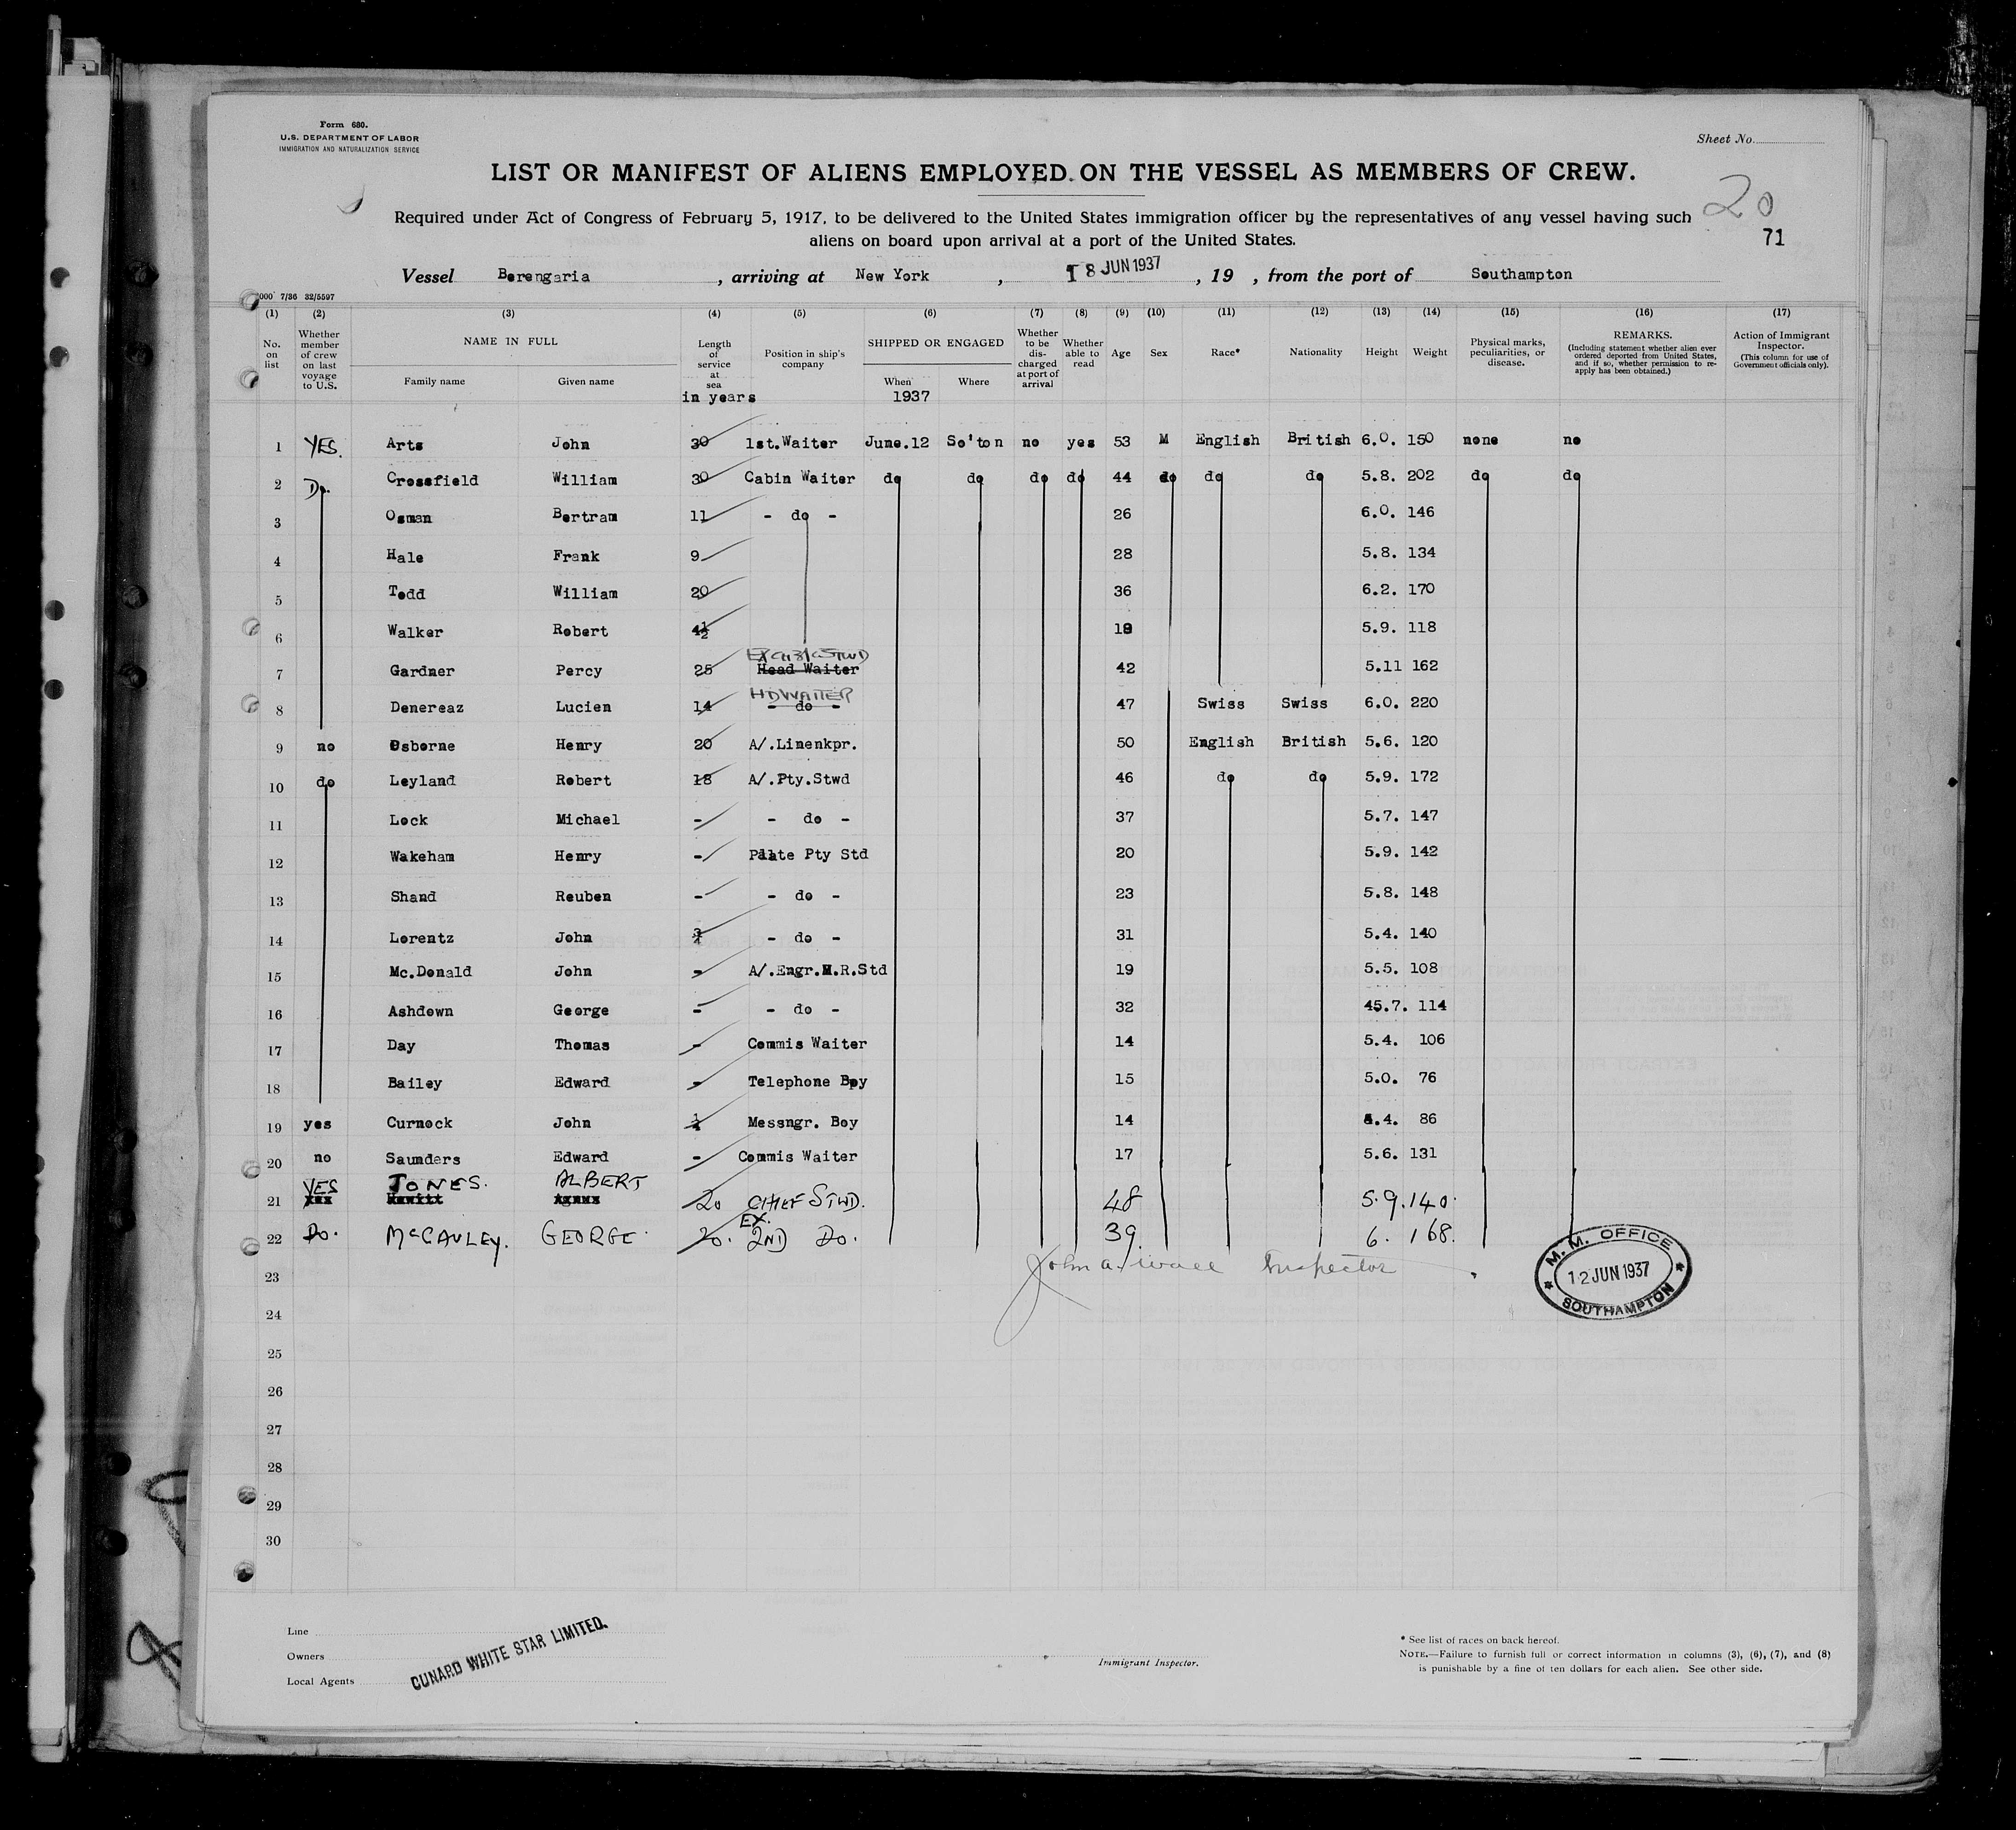 Form 680.
U.S. DEPARTMENT OF LABOR
IMMIGRATION AND NATURALIZATION SERVICE
Sheet No.
LIST OR MANIFEST OF ALIENS EMPLOYED ON THE VESSEL AS MEMBERS OF CREW.
20
Required under Act of Congress of February 5, 1917, to be delivered to the United States immigration officer by the representatives of any vessel having such
aliens on board upon arrival at a port of the United States.
71
Vessel Berengaria , arriving at New York , 18 JUN 1937 , 19 , from the port of Southampton
000 7/36 32/5597
(1) (2) (3) (4) (5) (6) (7) (8) (9) (10) (11) (12) (13) (14) (15) (16) (17)
No. on list
Whether member of crew on last voyage to U.S.
NAME IN FULL
Family name Given name
Length of service at sea
in years
Position in ship's company
SHIPPED OR ENGAGED
When Where
1937
Whether to be discharged at port of arrival
Whether able to read
Age
Sex
Race*
Nationality
Height
Weight
Physical marks, peculiarities, or disease.
REMARKS.
(Including statement whether alien ever ordered deported from United States, and if so, whether permission to re-apply has been obtained.)
Action of Immigrant Inspector.
(This column for use of Government officials only).
1 YES. Arts John 30 1st.Waiter June.12 So'ton no yes 53 M English British 6.0. 150 none no
2 Do. Crossfield William 30 Cabin Waiter do do do do 44 do do do 5.8. 202 do do
3 Osman Bertram 11 - do - 26 6.0. 146
4 Hale Frank 9 28 5.8. 134
5 Todd William 20 36 6.2. 170
6 Walker Robert 4½ 19 5.9. 118
7 Gardner Percy 25 Head Waiter 42 5.11 162
HDWAITER
8 Denereaz Lucien 14 - do - 47 Swiss Swiss 6.0. 220
9 no Osborne Henry 20 A/.Linenkpr. 50 English British 5.6. 120
10 do Leyland Robert 18 A/.Pty.Stwd 46 do do 5.9. 172
11 Lock Michael - - do - 37 5.7. 147
12 Wakeham Henry - Plate Pty Std 20 5.9. 142
13 Shand Reuben - - do - 23 5.8. 148
14 Lorentz John - do - 31 5.4. 140
15 Mc.Donald John - A/.Engr.M.R.Std 19 5.5. 108
16 Ashdown George - - do - 32 45.7. 114
17 Day Thomas - Commis Waiter 14 5.4. 106
18 Bailey Edward - Telephone Boy 15 5.0. 76
19 yes Curnock John Messngr. Boy 14 4. 86
20 no Saunders Edward - Commis Waiter 17 5.6. 131
YES JONES. ALBERT
21 Hewitt Agnes 20 CHIEF STWD. 48 5.9. 140.
EX.
22 Do. McCAULEY. GEORGE. 20. 2ND Do. 39. 6. 168.
John A. Wall Inspector
23
24
25
26
27
28
29
30
M. M. OFFICE
12 JUN 1937
SOUTHAMPTON
Line
Owners
Local Agents
CUNARD WHITE STAR LIMITED.
Immigrant Inspector.
* See list of races on back hereof.
NOTE.—Failure to furnish full or correct information in columns (3), (6), (7), and (8)
is punishable by a fine of ten dollars for each alien. See other side.